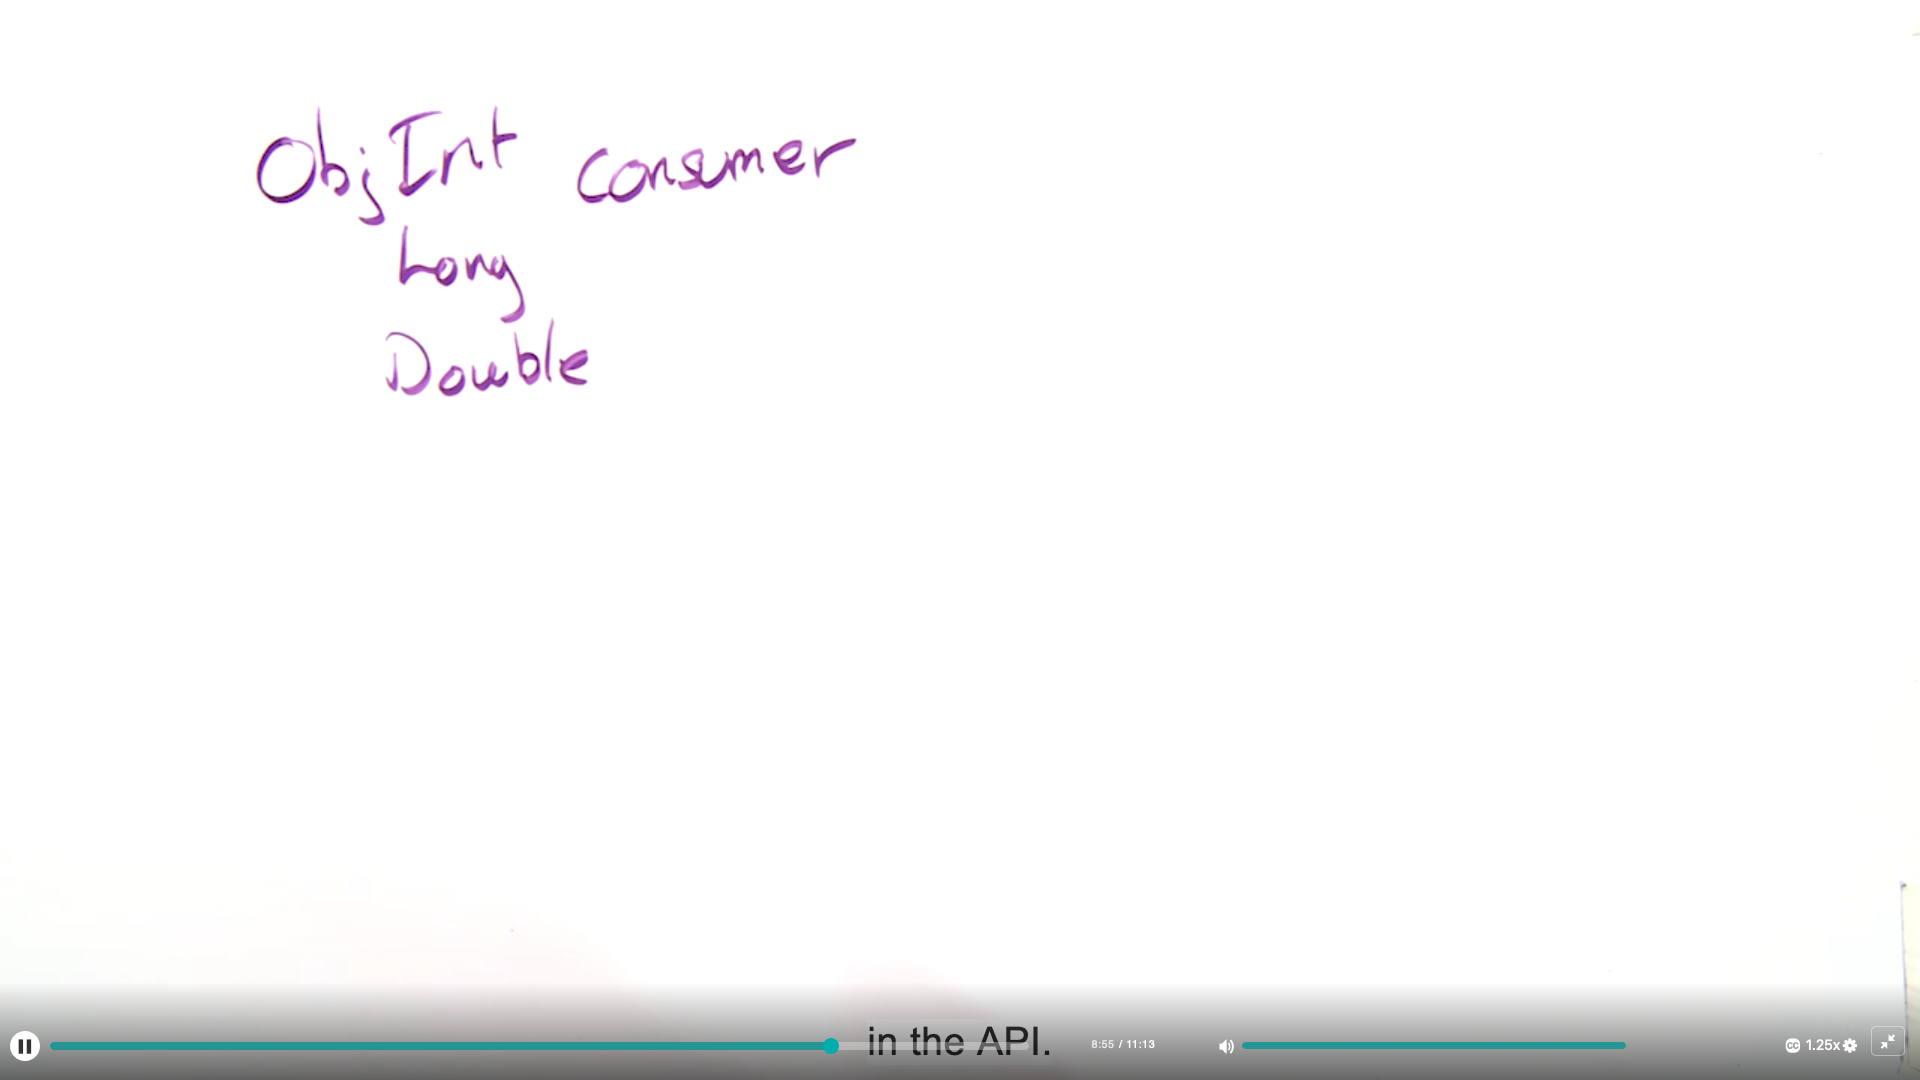 ObjInt Consumer
Long
Double
in the API.
8:55 / 11:13
CC 1.25x